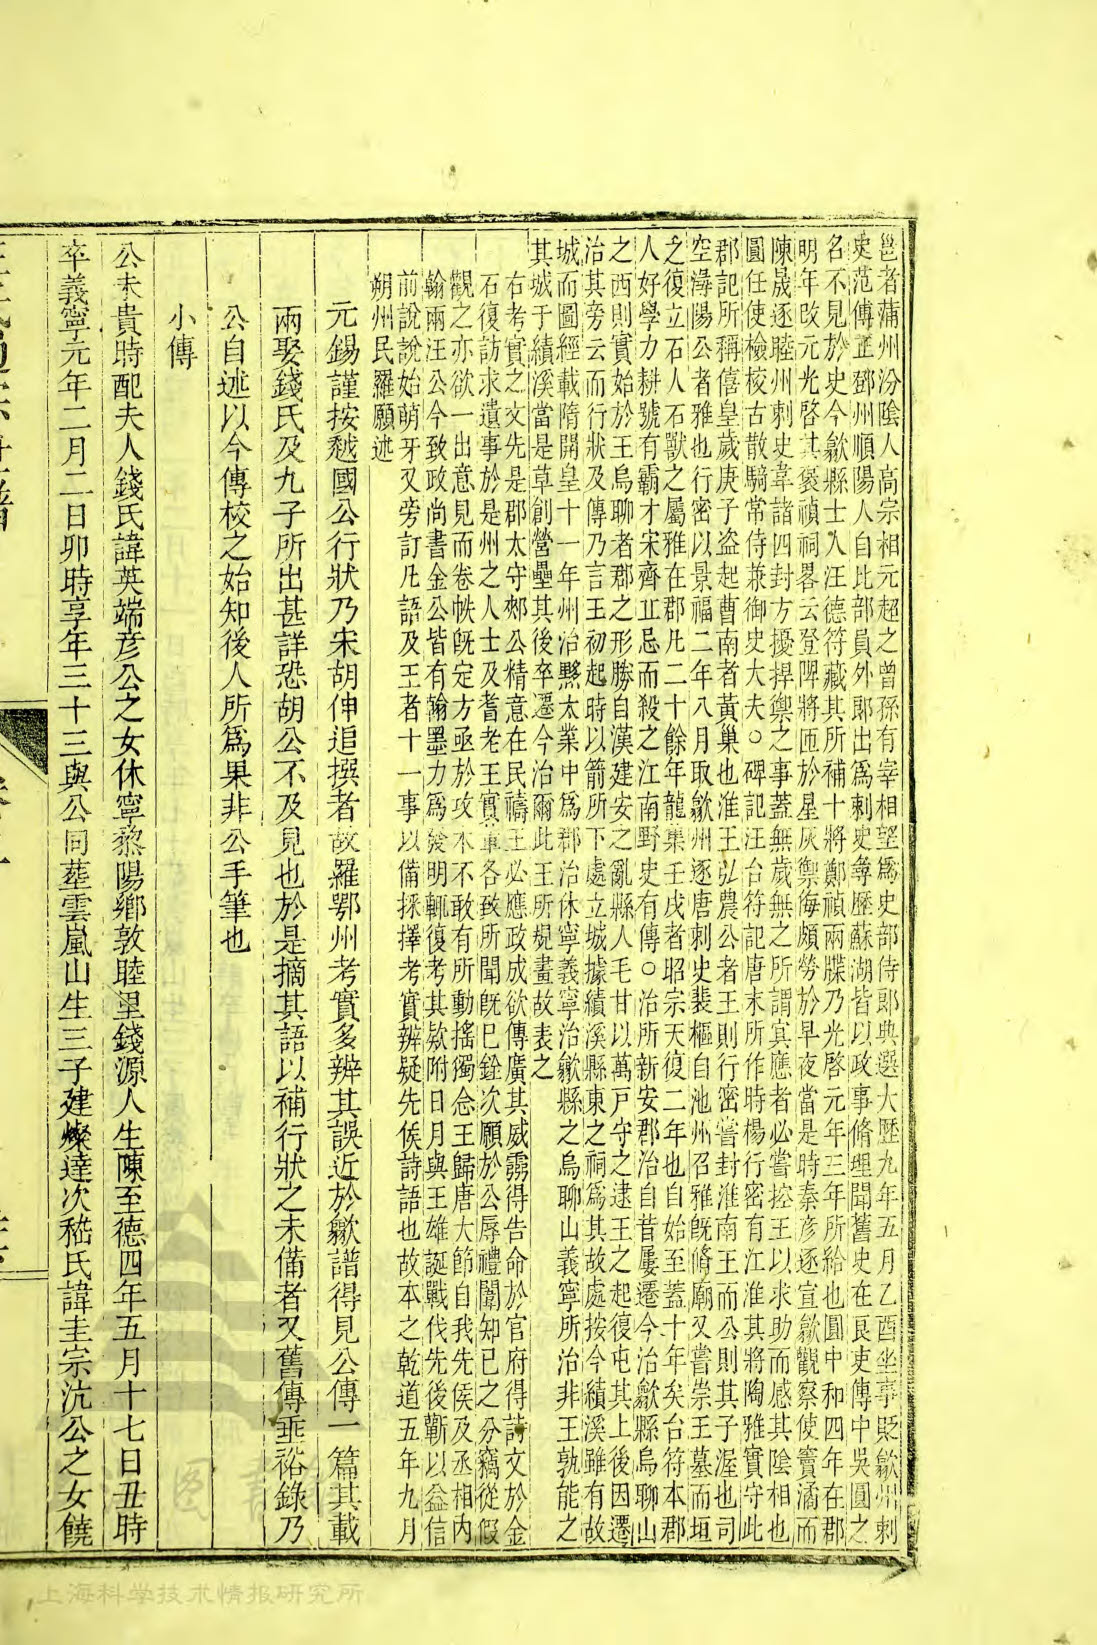 邕者蒲州汾陰人高宗相元超之曾孫有宰相望爲史部侍郎典選大歷九年五月乙酉坐事貶歙州刺
史范傳正鄧州順陽人自比部員外郎出爲刺史尋歷蘇湖皆以政事脩理聞舊史在良吏傳中吳圓之
名不見於史今歙縣士人汪德符藏其所補十將鄭禎兩牒乃光啓元年三年所給也圓中和四年在郡
明年改元光啓其褒禎祠畧云登陴將匝於星灰禦侮頗勞於早夜當是時秦彦逐宣歙觀察使竇潏而
陳晟逐睦州刺史韋諸四封方擾捍禦之事蓋無歲無之所謂冥應者必嘗控王以求助而感其陰相也
圓任使檢校古散騎常侍兼御史大夫○碑記汪台符記唐末所作時楊行密有江淮其將陶雅實守此
郡記所稱僖皇歲庚子盜起曹南者黃巢也淮王弘農公者王則行密嘗封淮南王而公則其子渥也司
空潯陽公者雅也行密以景福二年八月取歙州逐唐刺史裴樞自池州召雅旣脩廟又嘗崇王墓而垣
之復立石人石獸之屬雅在郡凡二十餘年龍集壬戌者昭宗天復二年也自始至蓋十年矣台符本郡
人好學力耕號有霸才宋齊丘忌而殺之江南野史有傳○治所新安郡治自昔屢遷今治歙縣烏聊山
之西則實始於王烏聊者郡之形勝自漢建安之亂縣人毛甘以萬戸守之逮王之起復屯其上後因遷
治其旁云而行狀及傳乃言王初起時以箭所下處立城據績溪縣東之祠爲其故處按今績溪雖有故
城而圖經載隋開皇十一年州治黟大業中爲郡治休寧義寧治歙縣之烏聊山義寧所治非王孰能之
其城于績溪當是草創營壘其後卒遷今治爾此王所規畫故表之
右考實之文先是郡太守郟公精意在民禱王必應政成欲傳廣其威靈得告命於官府得詩文於金
石復訪求遺事於是州之人士及耆老王實車各致所聞旣巳銓次願於公辱禮闢知已之分竊從假
觀之亦欲一出意見而卷帙旣定方亟於攻木不敢有所動搖獨念王歸唐大節自我先侯及丞相内
翰兩汪公今致政尚書金公皆有翰墨力爲發明輒復考其欵附日月與王雄誕戰伐先後蘄以益信
前說說始萌牙又旁訂凡語及王者十一事以備採擇考實辨疑先侯詩語也故本之乾道五年九月
朔州民羅願述
元錫謹按越國公行狀乃宋胡伸追撰者故羅鄂州考實多辨其誤近於歙譜得見公傳一篇其載
兩娶錢氏及九子所出甚詳恐胡公不及見也於是摘其語以補行狀之未備者又舊傳垂裕錄乃
公自述以今傳校之始知後人所爲果非公手筆也
小傳
公未貴時配夫人錢氏諱英端彦公之女休寧黎陽鄉敦睦里錢源人生陳至德四年五月十七日丑時
卒義寧元年二月二日卯時享年三十三與公同塟雲嵐山生三子建燦達次嵇氏諱圭宗沆公之女饒
上海科学技术情报研究所